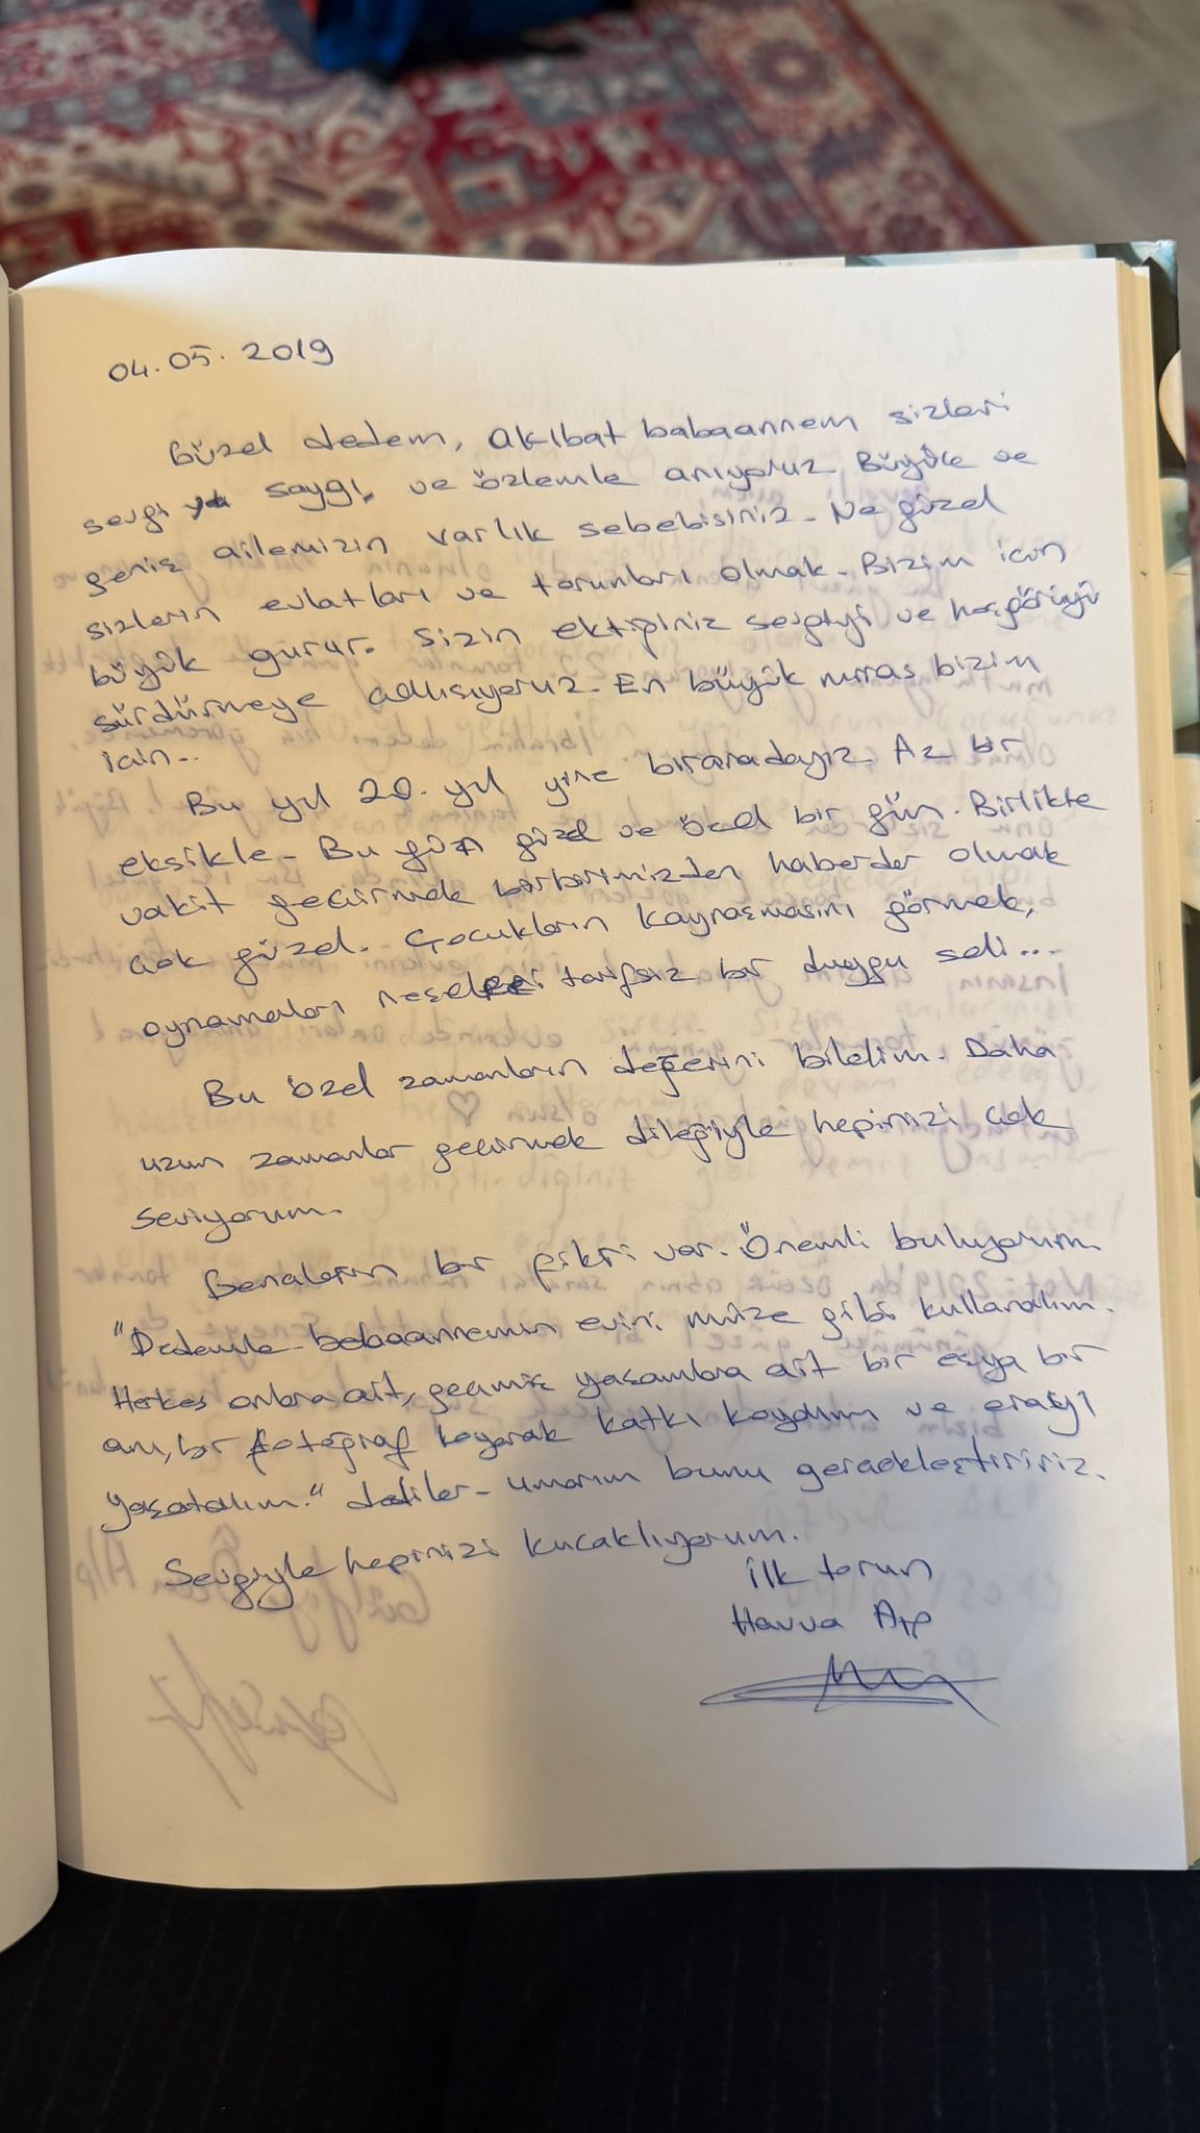 04.05.2019
Güzel dedem, akıbat babaannem sizleri
sevgi saygı, ve özlemle anıyoruz. Büyük ve
geniş ailemizin varlık sebebisiniz. Ne güzel
sizlerin evlatları ve torunları olmak. Bizim için
büyük gurur. Sizin ektiğiniz sevgiyi ve hoşgörüyü
sürdürmeye çalışıyoruz. En büyük miras bizim
için..
Bu yıl 20. yıl yine biraradayız. Az bir
eksikle. Bu gün güzel ve özel bir gün. Birlikte
vakit geçirmek birbirimizden haberdar olmak
çok güzel. Çocukların kaynaşmasını görmek,
oynamaları neşeleri tarifsiz bir duygu seli...
Bu özel zamanların değerini bilelim. Daha
uzun zamanlar geçirmek dileğiyle hepinizi çok
seviyorum.
bir fikri var. Önemli buluyorum.
"Dedemle babaannemin evini müze gibi kullanalım.
Herkes onlara ait, geçmiş yaşamlara ait bir eşya bir
anı, bir fotoğraf koyarak katkı koyalım ve orayı
yaşatalım." dediler. Umarım bunu gerçekleştiririz.
Sevgiyle hepinizi kucaklıyorum.
İlk torun
Havva Alp